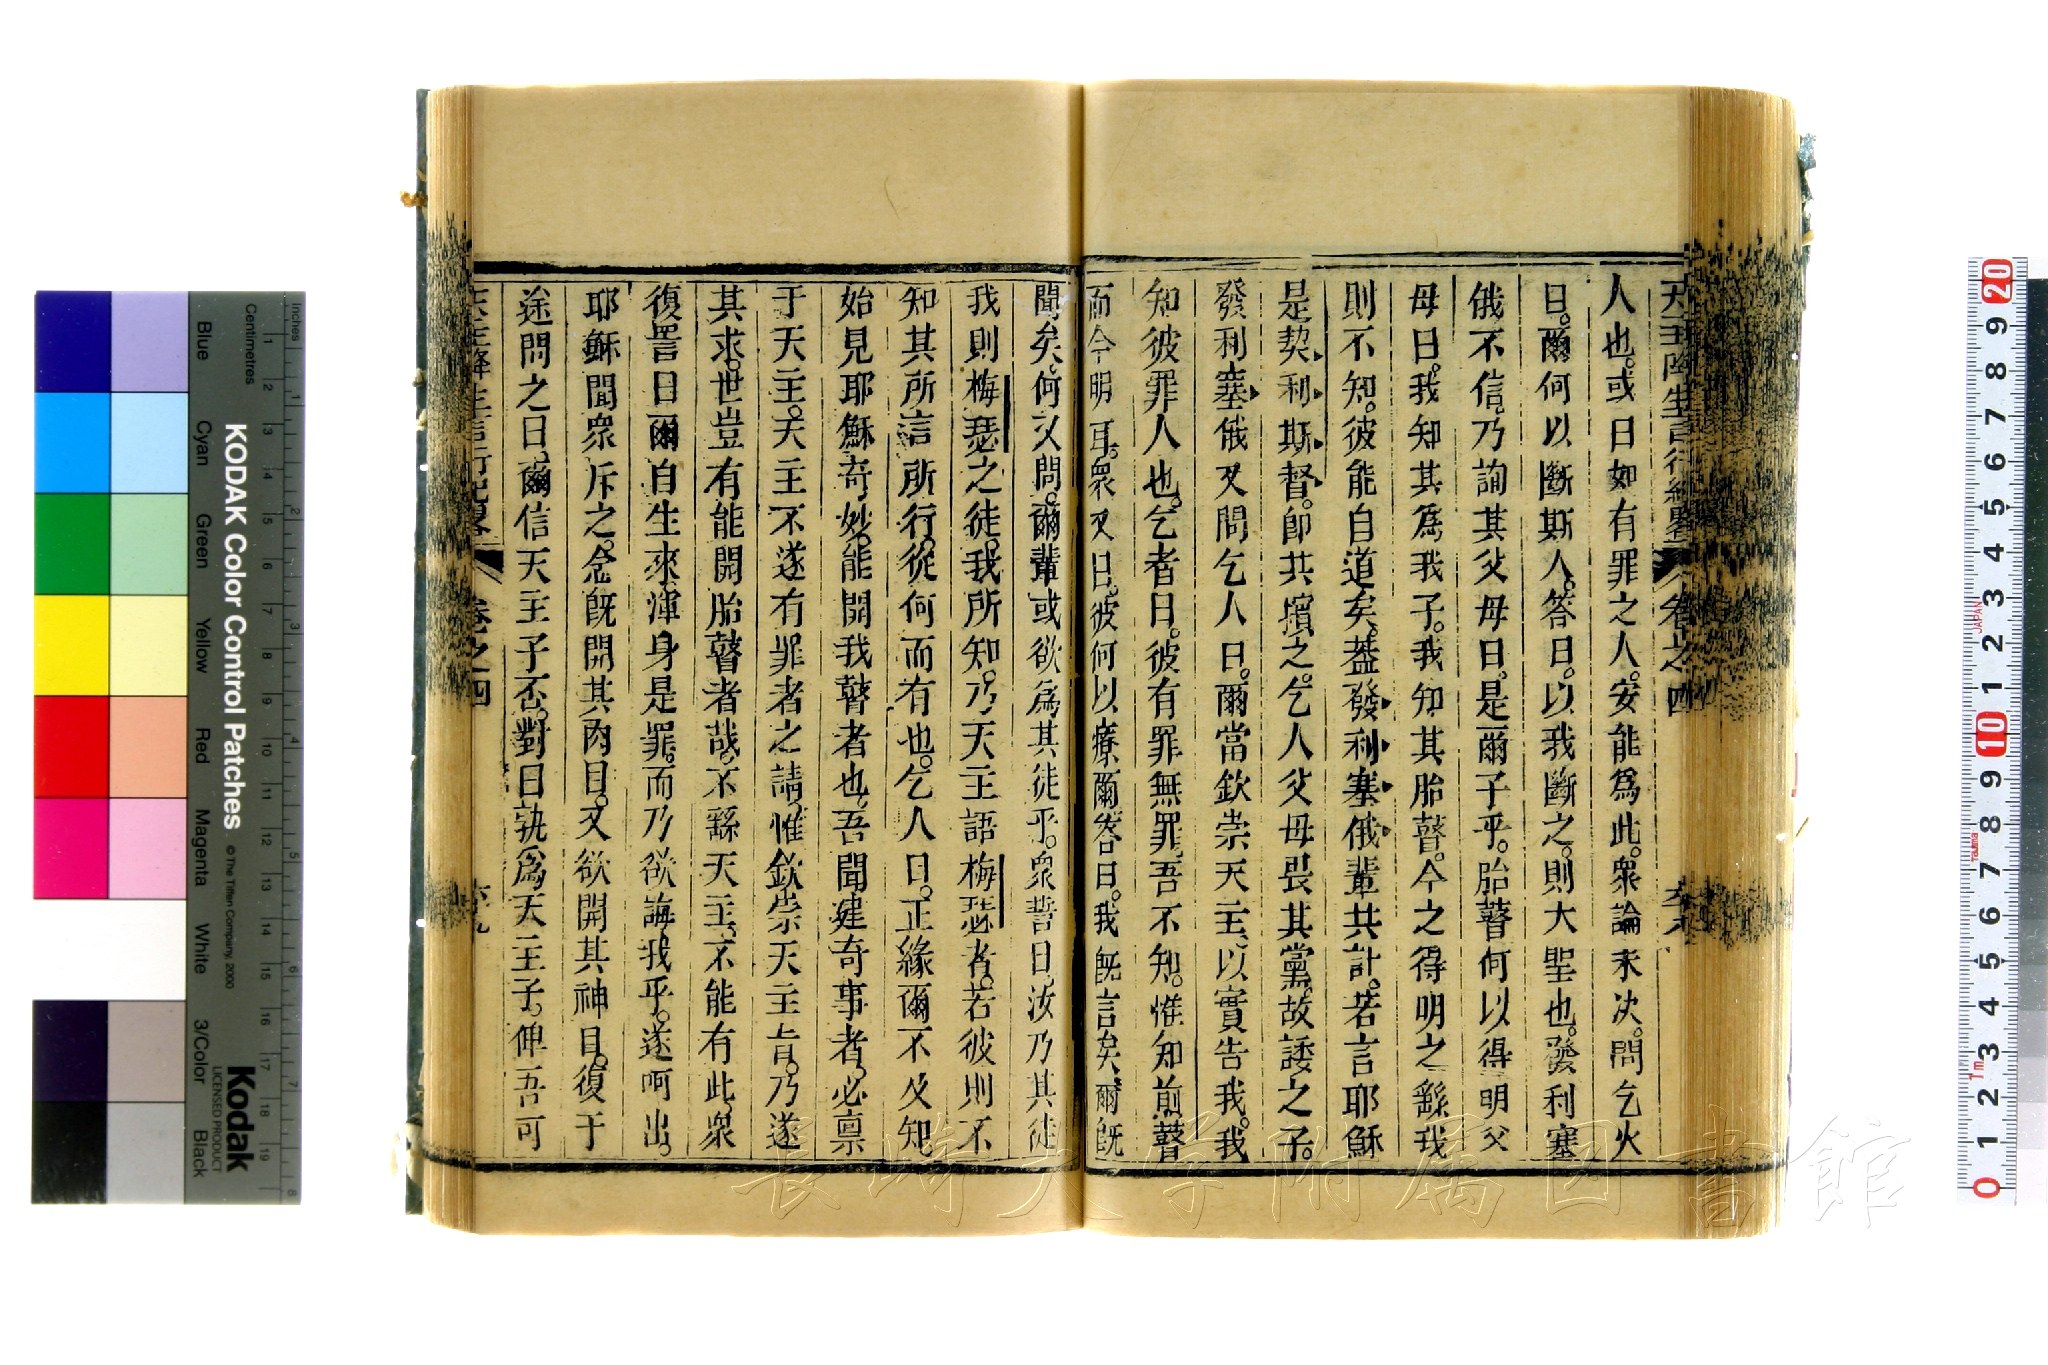 天主降生言行紀畧 卷之四
人也。或曰如有罪之人。安能爲此。衆論未决。問乞火
曰。爾何以斷斯人。答曰。以我斷之。則大聖也。發利塞
俄不信。乃詢其父母曰。是爾子乎。胎瞽何以得明。父
母曰。我知其爲我子。我知其胎瞽。今之得明之繇。我
則不知。彼能自道矣。葢發利塞俄輩共計。若言耶穌
是契利斯督。卽共擯之。乞人父母畏其黨。故諉之子。
發利塞俄又問乞人曰。爾當欽崇天主。以實告我。我
知彼罪人也。乞者曰。彼有罪無罪。吾不知。惟知前瞽
而今明耳。衆又曰。彼何以療爾。答曰。我旣言矣。爾旣
聞矣。何又問。爾輩或欲爲其徒乎。衆詈曰。汝乃其徒
我則梅瑟之徒。我所知。乃天主語梅瑟者。若彼則不
知其所言所行。從何而有也。乞人曰。正緣爾不及知。
始見耶穌奇妙。能開我瞽者也。吾聞建奇事者。必禀
于天主。天主不遂有罪者之請。惟欽崇天主旨。乃遂
其求。世豈有能開胎瞽者哉。不繇天主。不能有此。衆
復詈曰爾自生來渾身是罪。而乃欲誨我乎。遂呵出。
耶穌聞衆斥之。念旣開其肉目。又欲開其神目。復于
途問之曰。爾信天主子否。對曰孰爲天主子。俾吾可
天主降生言行紀畧 卷之四
長崎大学附属図書館
KODAK Color Control Patches
© The Tiffen Company, 2000
Kodak
LICENSED PRODUCT
Inches
Centimetres
Blue
Cyan
Green
Yellow
Red
Magenta
White
3/Color
Black